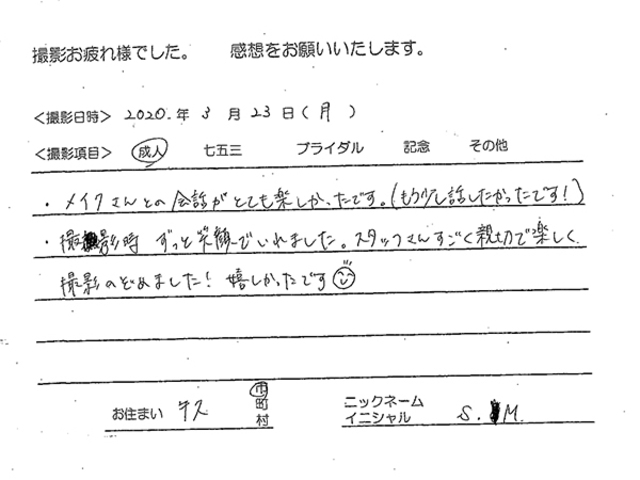 撮影お疲れ様でした。 感想をお願いいたします。
<撮影日時> 2020.年 3 月 23 日 (月)
<撮影項目> 成人 七五三 ブライダル 記念 その他
・メイクさんとの会話がとても楽しかったです。(もう少し話したかったです!)
・撮影時 ずっと笑顔でいれました。スタッフさんすごく親切で楽しく
撮影のぞめました! 嬉しかったです
お住まい 市町村 ニックネーム イニシャル S. M.